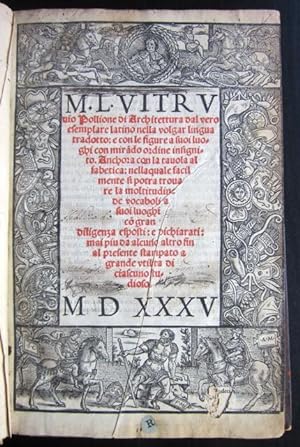 M. L. VITRV
uio Pollione di Architettura dal vero
esemplare latino nella volgar lingua
tradotto: e con le figure a suoi luo⸗
ghi con mirãdo ordine insigni⸗
to. Anchora con la tauola al
fabetica: nella quale facil
mente si potra troua
re la moltitudine
de vocaboli a
suoi luoghi
cõ gran
diligenza esposti: e dichiarati:
mai piu da alcuno altro fin
al presente stampato a
grande vtilita di
ciascuno stu⸗
dioso.
M D XXXV
R